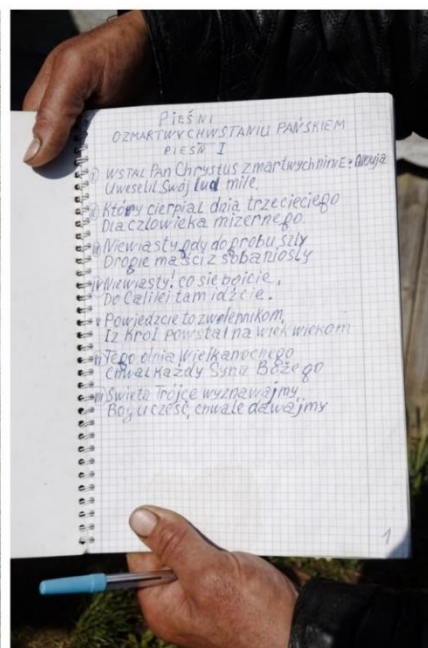 PIEŚNI
O ZMARTWYCHWSTANIU PAŃSKIEM
PIEŚŃ I
I) WSTAŁ Pan Chrystus zmartwych ninie: Alleluja
Uweselił Swój lud mile,
II) Który cierpiał dnia trzeciego
Dla człowieka mizernego.
III) Niewiasty gdy do grobu szły
Drogie maści z sobą niosły
IV) Niewiasty! co się boicie,
Do Galilei tam idźcie.
V Powiedzcie to zwolennikom,
Iż Król powstał na wiek wiekom
VI) Tego dnia Wielkanocnego
Chwal Każdy Syna Bożego
VII Święta Trójcę wyznawajmy,
Bogu cześć, chwałę dawajmy
1